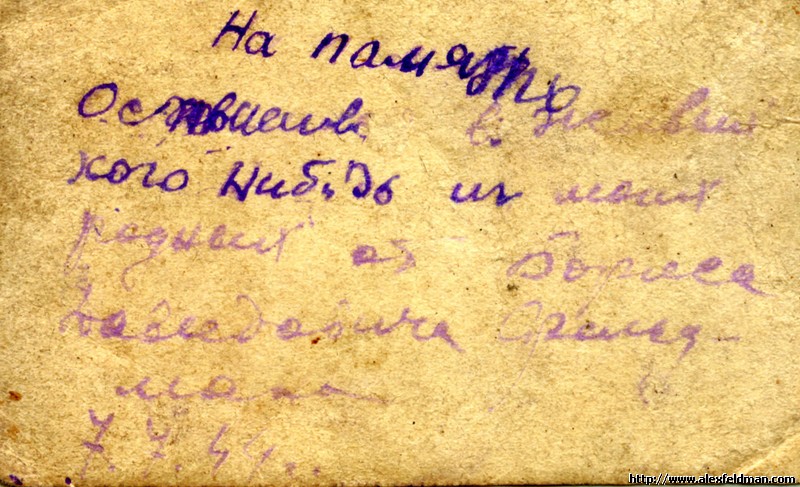 На память
Оставшив в живых
кого нибудь из моих
родных от Бориса
Давидовича Фельд-
мана
7.7.44 г.
http://www.alexfeldman.com